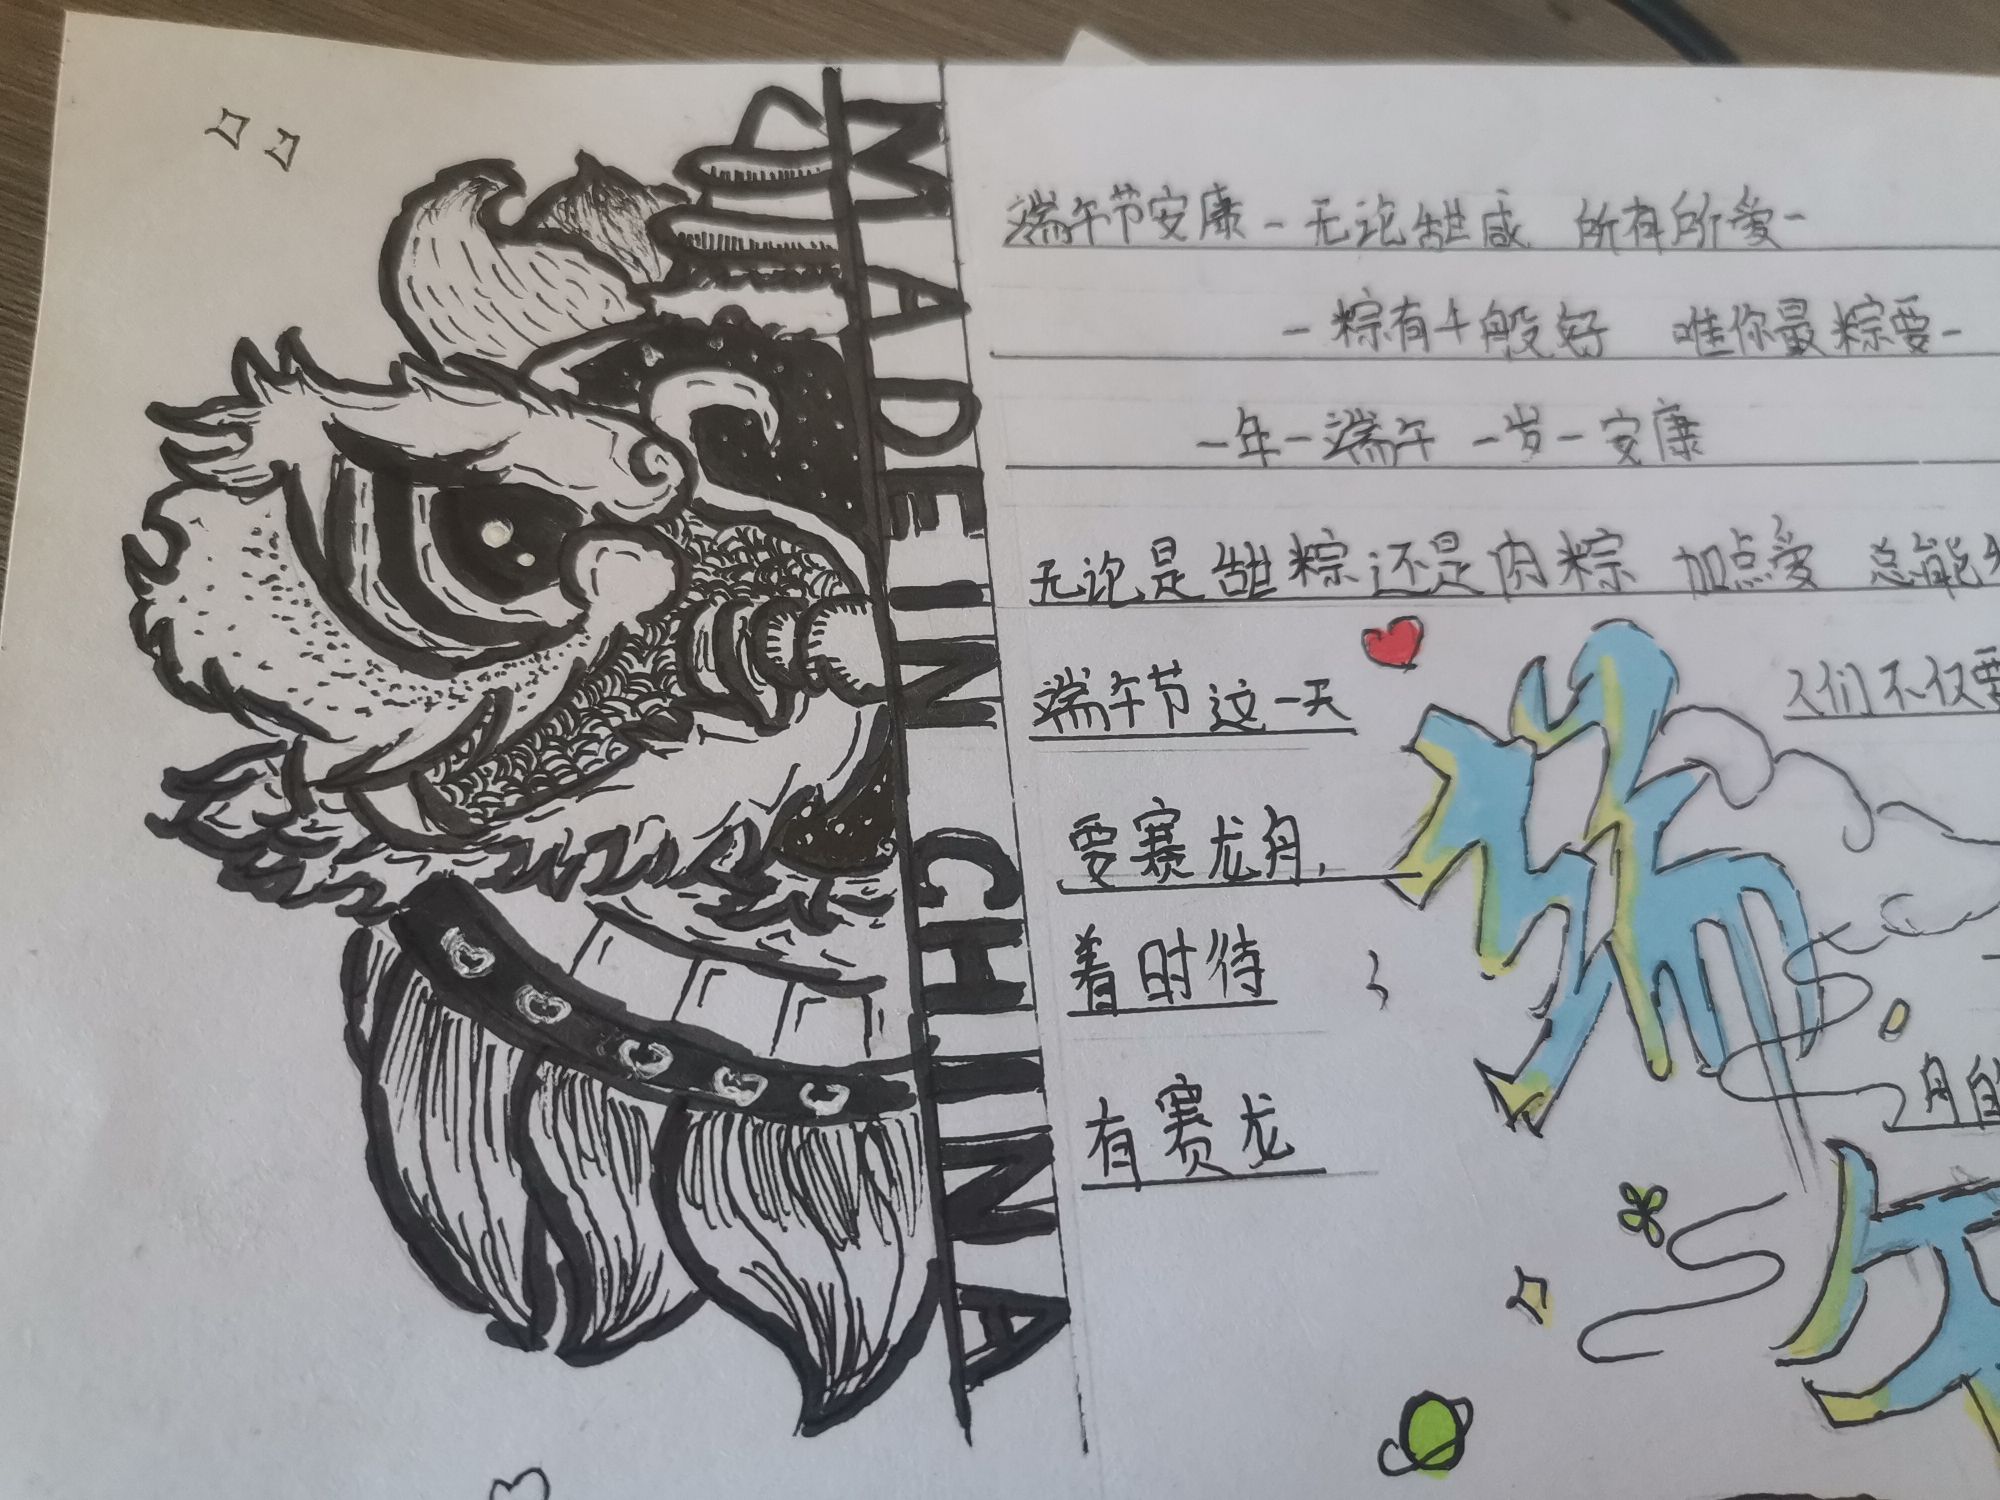 MADE IN CHINA
端午节安康-无论甜咸 所有所爱-
-粽有千般好 唯你最粽要-
一年一端午 一岁一安康
无论是甜粽还是肉粽 加点爱 总能
端午节这一天
人们不仅要
要赛龙舟,
着时待
有赛龙
端
舟
午